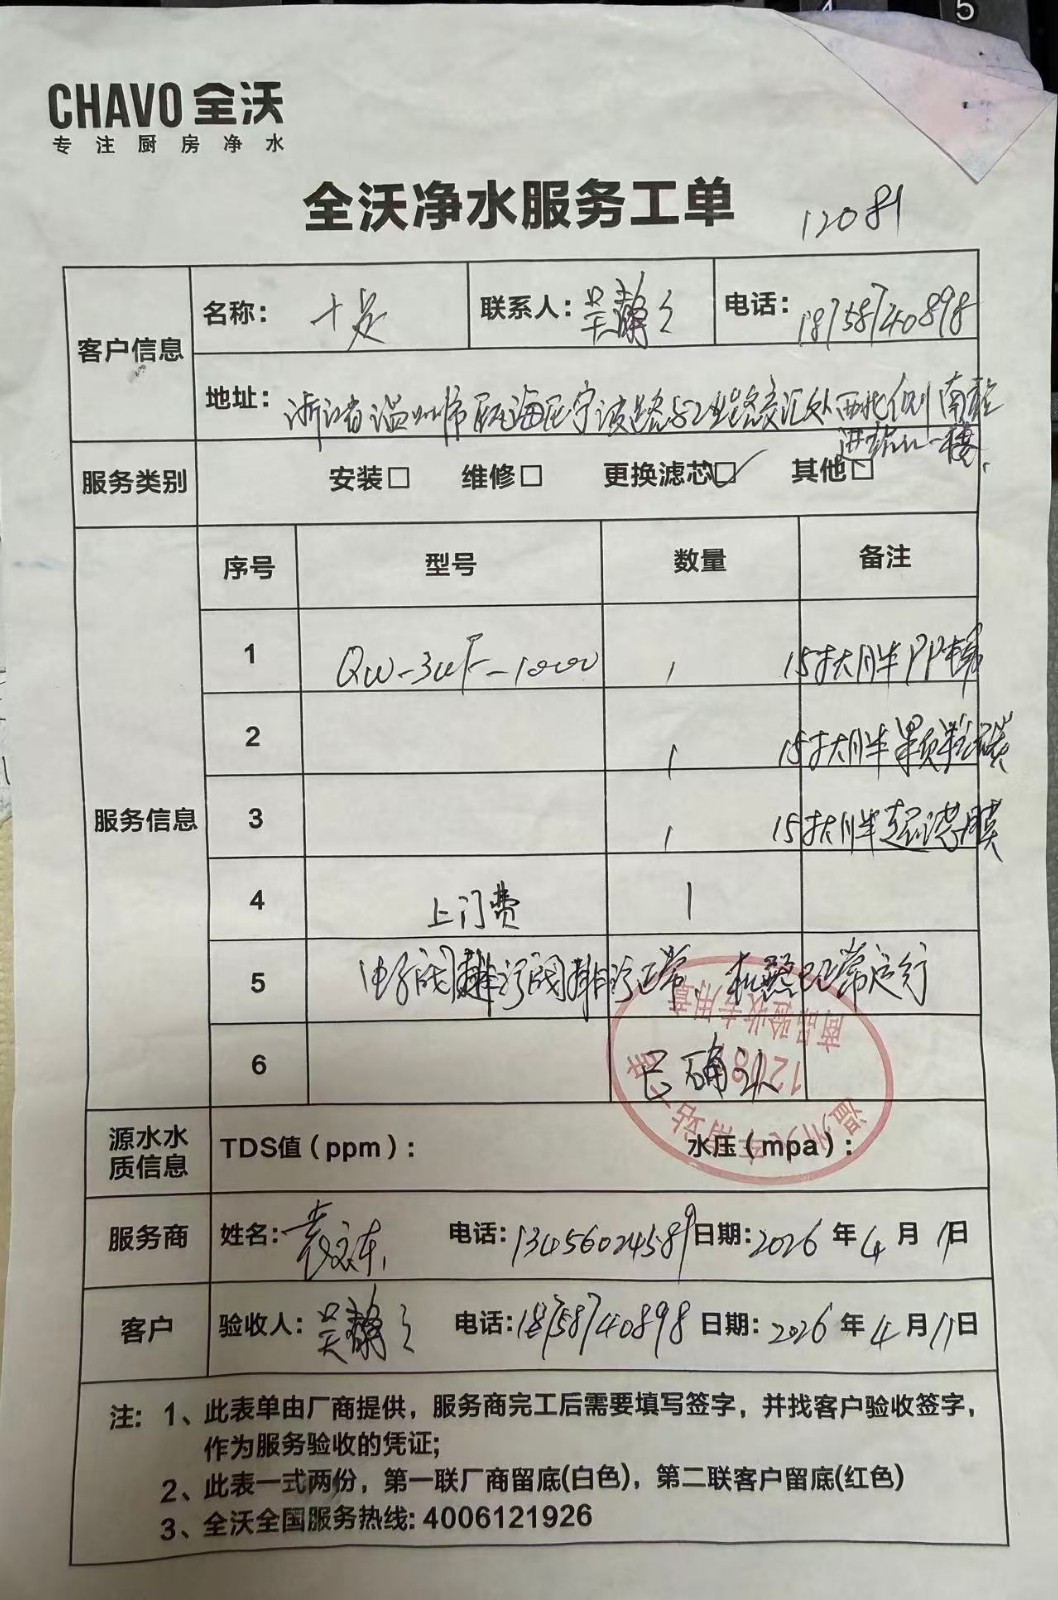 CHAVO 全沃
专注厨房净水
全沃净水服务工单 12081
客户信息 名称： 十足 联系人：吴静 电话：18758740898
地址：浙江省温州市瓯海区宁波路与工业路交汇处西北侧南
进站口一楼
服务类别 安装□ 维修□ 更换滤芯☑ 其他□
服务信息 序号 型号 数量 备注
1 QW-3UF-1000 1 15寸大胖PP棉
2 1 15寸大胖颗粒碳
3 1 15寸大胖超滤膜
4 上门费 1
5 电子阀排污阀排污正常、机器已正常运行
6 已确认
温州火车南站
1208
商品验收专用章
源水水质信息 TDS值（ppm）： 水压（mpa）：
服务商 姓名： 电话：13456024589 日期：2026 年 4 月 11日
客户 验收人：吴静 电话：18758740898 日期：2026 年 4 月 11日
注：1、此表单由厂商提供，服务商完工后需要填写签字，并找客户验收签字，
作为服务验收的凭证；
2、此表一式两份，第一联厂商留底(白色)，第二联客户留底(红色)
3、全沃全国服务热线: 4006121926